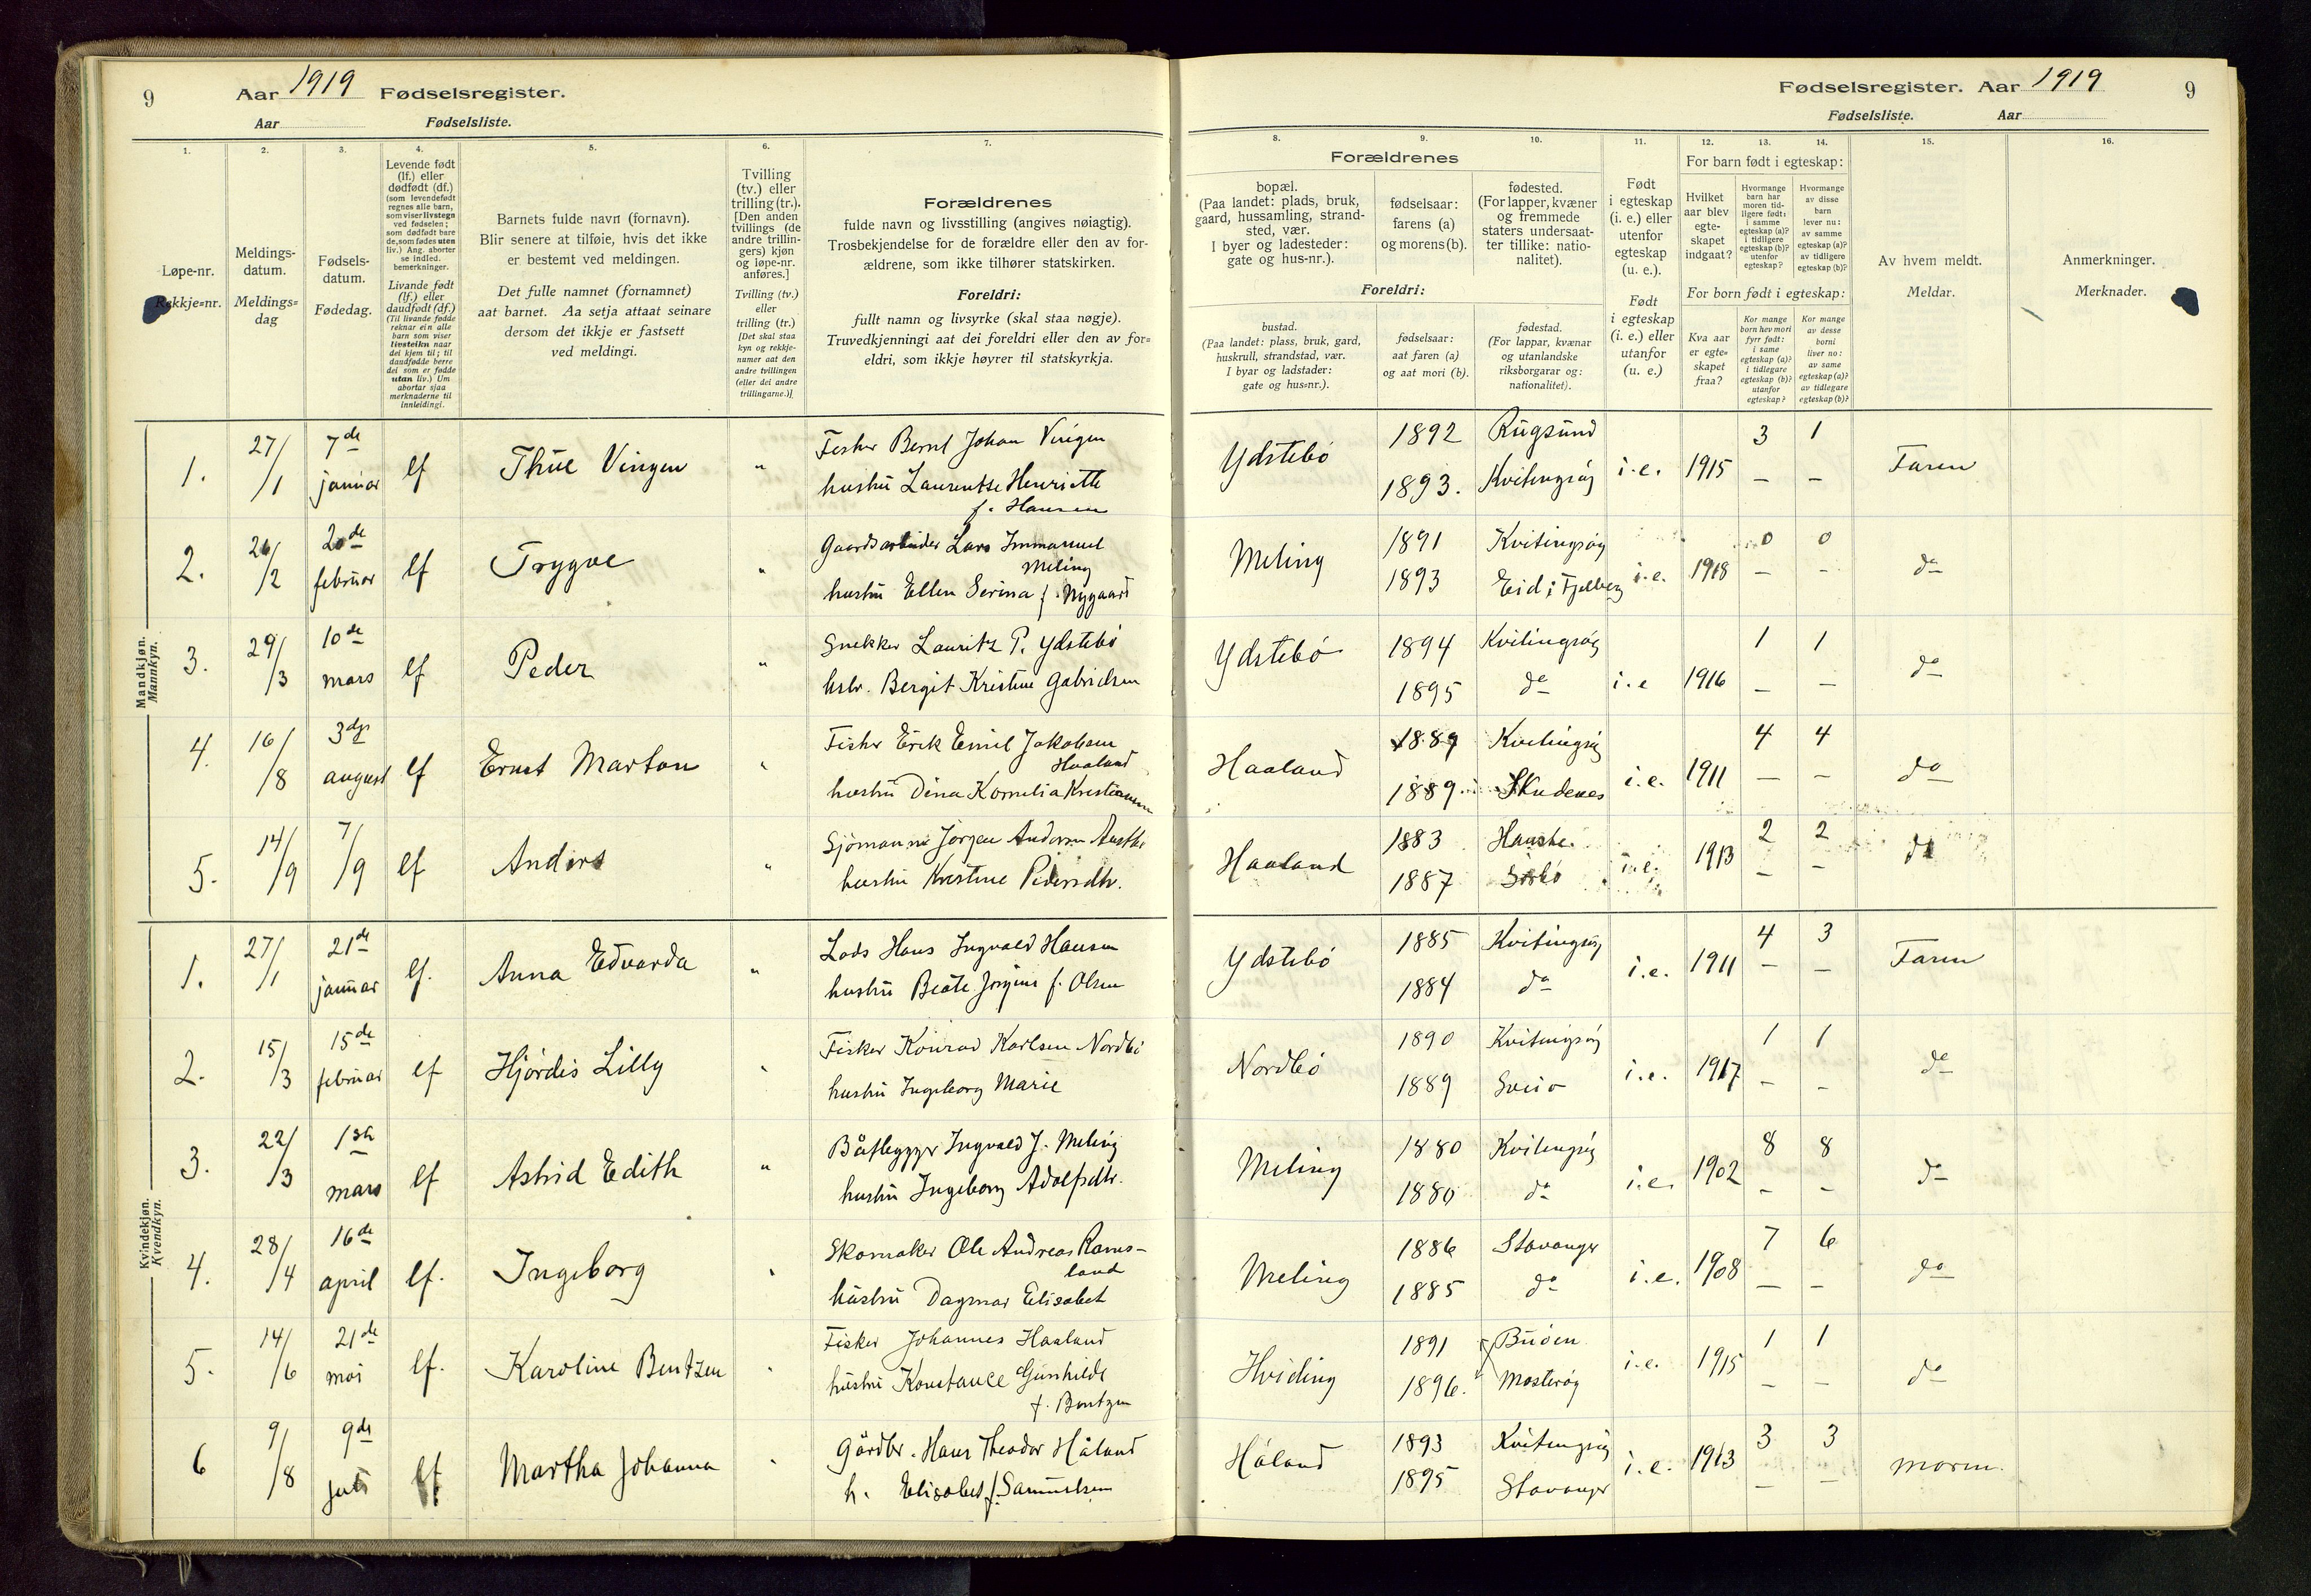 9
Aar 1919 Fødselsregister.
Aar Fødselsliste.
Fødselsregister. Aar 1919
9
Fødselsliste. Aar
1.
2.
3.
4.
5.
6.
7.
8.
9.
10.
11.
12.
13.
14.
15.
16.
Løpe-nr.
Rekkje=nr.
Meldings-
datum.
Meldings=
dag
Fødsels-
datum.
Fødedag.
Levende født
(lf.) eller
dødfødt (df.)
(som levendefødt
regnes alle barn,
som viser livstegn
ved fødselen;
som dødfødt bare
de, som fødes uten
liv.) Ang. aborter
se indled.
bemerkninger.
Livande født
(lf.) eller
daudfødt (df.)
(Til livande fødde
reknar ein alle
barn som viser
livsteikn naar
dei kjem til; til
daudfødde berre
dei som er fødde
utan liv.) Um
abortar sjaa
merknaderne til
innleidingi.
Barnets fulde navn (fornavn).
Blir senere at tilføie, hvis det ikke
er bestemt ved meldingen.
Det fulle namnet (fornamnet)
aat barnet. Aa setja attaat seinare
dersom det ikkje er fastsett
ved meldingi.
Tvilling
(tv.) eller
trilling (tr.).
[Den anden
tvillings (de
andre trillin-
gers) kjøn
og løpe-nr.
anføres.]
Tvilling (tv.)
eller
trilling (tr.)
[Det skal staa
kyn og rekkje-
numer aat den
andre tvillingen
(eller dei andre
trillingarne.)]
Forældrenes
fulde navn og livsstilling (angives nøiagtig).
Trosbekjendelse for de forældre eller den av for-
ældrene, som ikke tilhører statskirken.
Foreldri:
fullt namn og livsyrke (skal staa nøgje).
Truvedkjenningi aat dei foreldri eller den av for=
eldri, som ikkje høyrer til statskyrkja.
Forældrenes
bopæl.
(Paa landet: plads, bruk,
gaard, hussamling, strand-
sted, vær.
I byer og ladesteder:
gate og hus-nr.).
fødselsaar:
farens (a)
og morens (b).
fødested.
(For lapper, kvæner
og fremmede
staters undersaat-
ter tillike: natio-
nalitet).
Foreldri:
bustad.
(Paa landet: plass, bruk, gard,
huskrull, strandstad, vær.
I byar og ladstader:
gate og hus=nr.).
fødselsaar:
aat faren (a)
og aat mori (b).
fødestad.
(For lappar, kvænar
og utanlandske
riksborgarar og:
nationalitet).
Født
i egteskap
(i. e.) eller
utenfor
egteskap
(u. e.).
Født
i egteskap
(i. e.) eller
utanfor
(u. e.)
For barn født i egteskap:
Hvilket
aar blev
egte-
skapet
indgaat?
Hvormange
barn har
moren tid-
ligere født:
i samme
egteskap (a)?
i tidligere
egteskap (b)?
utenfor
egteskap?
Hvormange
av disse
barn
lever nu:
av samme
egteskap (a)?
av tidligere
egteskap (b)?
For born født i egteskap:
Kva aar
er egte=
skapet
fraa?
Kor mange
born hev mori
fyrr født:
i same
egteskap (a)?
i tidlegare
egteskap (b)?
utanfor
egteskap?
Kor mange
av desse
borni
liver no:
av same
egteskap (a)?
av tidlegare
egteskap (b)?
Av hvem meldt.
Meldar.
Anmerkninger.
Merknader.
Mandkjøn.
Mannkyn.
1. 27/1 7de januar lf Thue Vingen " Fisker Bernt Johan Vingen
hustru Laurentse Henriette
f. Hansen
Ydstebö 1892 Rugsund i.e. 1915 3 1 Faren
1893. Kvitingsöy – –
2. 26/2 20de februar lf Trygve " Gaardsarbeider Lars Immanuel
Meling
hustru Ellen Serina f. Nygaard
Meling 1891 Kvitingsöy i.e. 1918 0 0 do
1893 Eid i Fjelberg – –
3. 29/3 10de mars lf Peder " Snekker Lauritz P. Ydstebö
hstr. Bergit Kristine Gabrielsen
Ydstebö 1894 Kvitingsöy i.e 1916 1 1 do
1895 do – –
4. 16/8 3dje august lf Ernst Marton " Fisker Erik Emil Jakobsen
Haaland
hustru Dina Kornelia Kristiansen
Haaland 1889 Kvitingsöy i.e. 1911 4 4 do
1889. Skudenes – –
5. 14/9 7/9 lf Anders " Sjömann Jörgen Andersen
hustru Kristine Pedersdtr.
Haaland 1883 i.e. 1913 2 2 do
1887 – –
Kvindekjøn.
Kvendkyn.
1. 27/1 21de januar lf. Anna Edvarda " Lods Hans Ingvald Hansen
hustru Beate Jörgine f. Olsen
Ydstebö 1885 Kvitingsöy i.e. 1911 4 3 Faren
1884 do – –
2. 15/3 15de februar lf Hjördis Lilly " Fisker Konrad Karlsen Nordbö
hustru Ingeborg Marie
Nordbö 1890 Kvitingsöy i.e. 1917 1 1 do
1889 Sveio – –
3. 22/3 1ste mars lf Astrid Edith " Båtbygger Ingvald J. Meling
hustru Ingeborg Adolfsdtr.
Meling 1880 Kvitingsöy i.e. 1902 8 8 do
1880 do – –
4. 28/4 16de april lf. Ingeborg " Skomaker Ole Andreas Rams-
land
hustru Dagmar Elisabet
Meling 1886 Stavanger i.e. 1908 7 6 do
1885 do – –
5. 14/6 21de mai lf. Karoline Bentzen " Fisker Johannes Haaland
hustru Konstance Gunhilde
f. Bentzen
Hviding 1891 Buöen i.e. 1915 1 1 do
1896. Mosteröy – –
6 9/8 9de juli lf Martha Johanna " Gårdbr. Hans Theodor Håland
h. Elisabet f. Samuelsen
Håland 1893 Kvitingsöy i.e. 1913 3 3 moren.
1895 Stavanger – –